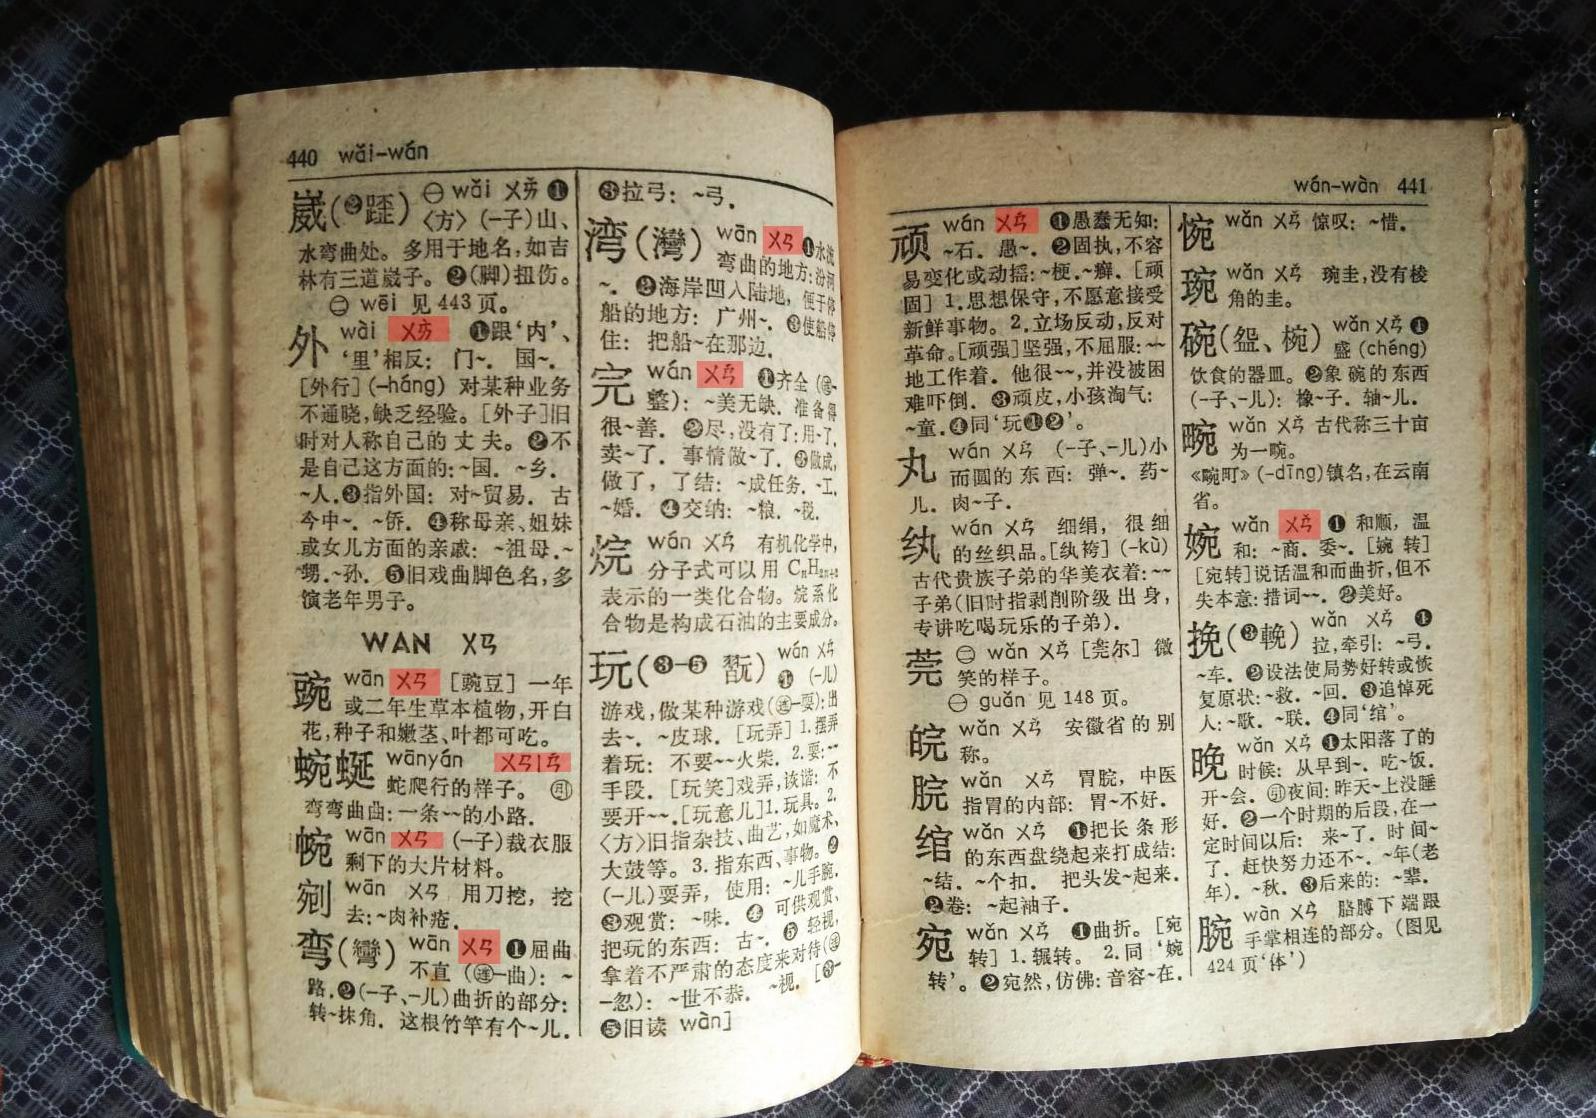 440 wǎi-wán
崴(❷踒) ㊀ wǎi ㄨㄞˇ ❶
〈方〉(-子)山、
水弯曲处。多用于地名,如吉
林有三道崴子。❷(脚)扭伤。
㊁ wēi 见 443 页。
外 wài ㄨㄞˋ ❶跟‘内’、
‘里’相反: 门~. 国~.
[外行](-háng) 对某种业务
不通晓,缺乏经验。[外子]旧
时对人称自己的丈夫。❷不
是自己这方面的:~国. ~乡.
~人.❸指外国: 对~贸易. 古
今中~. ~侨. ❹称母亲、姐妹
或女儿方面的亲戚: ~祖母.~
甥.~孙. ❺旧戏曲脚色名,多
演老年男子。
WAN ㄨㄢ
豌 wān ㄨㄢ [豌豆] 一年
或二年生草本植物,开白
花,种子和嫩茎、叶都可吃。
蜿蜒 wānyán ㄨㄢㄧㄢˊ
蛇爬行的样子。㊞
弯弯曲曲:一条~~的小路.
帵 wān ㄨㄢ (-子)裁衣服
剩下的大片材料。
剜 wān ㄨㄢ 用刀挖,挖
去:~肉补疮.
弯(彎) wān ㄨㄢ ❶屈曲
不直 (㊣-曲): ~
路.❷(-子、-儿)曲折的部分:
转~抹角. 这根竹竿有个~儿.
❸拉弓: ~弓.
湾(灣) wān ㄨㄢ ❶水流
弯曲的地方:汾河
~. ❷海岸凹入陆地, 便于停
船的地方: 广州~. ❸使船停
住: 把船~在那边.
完 wán ㄨㄢˊ ❶齐全 (㊣-
整): ~美无缺. 准备得
很~善. ❷尽,没有了:用~了.
卖~了. 事情做~了. ❸做成,
做了,了结: ~成任务. ~工.
~婚. ❹交纳: ~粮. ~税.
烷 wán ㄨㄢˊ 有机化学中,
分子式可以用 CnH2n+2
表示的一类化合物。烷系化
合物是构成石油的主要成分。
玩(❸-❺ 翫) wán ㄨㄢˊ
❶ (-儿)
游戏,做某种游戏(㊣-耍):出
去~. ~皮球. [玩弄] 1.摆弄
着玩: 不要~~火柴. 2.耍:~~
手段. [玩笑]戏弄,诙谐: 不
要开~~.[玩意儿]1.玩具。2.
〈方〉旧指杂技、曲艺,如魔术、
大鼓等。3.指东西、事物。❷
(-儿)耍弄,使用: ~儿手腕.
❸观赏: ~味. ❹ 可供观赏、
把玩的东西: 古~. ❺ 轻视,
拿着不严肃的态度来对待(㊣
-忽): ~世不恭. ~视. [❸-
❺旧读 wàn]
wán-wàn 441
顽 wán ㄨㄢˊ ❶愚蠢无知:
~石. 愚~. ❷固执,不容
易变化或动摇:~梗.~癣.[顽
固] 1.思想保守,不愿意接受
新鲜事物。2.立场反动,反对
革命。[顽强]坚强,不屈服:~~
地工作着. 他很~~,并没被困
难吓倒. ❸顽皮,小孩淘气:
~童.❹同‘玩❶❷’。
丸 wán ㄨㄢˊ (-子、-儿)小
而圆的东西: 弹~. 药~
儿. 肉~子.
纨 wán ㄨㄢˊ 细绢, 很细
的丝织品。[纨袴] (-kù)
古代贵族子弟的华美衣着:~~
子弟(旧时指剥削阶级出身,
专讲吃喝玩乐的子弟).
莞 ㊁ wǎn ㄨㄢˇ [莞尔] 微
笑的样子。
㊀ guǎn 见 148 页。
皖 wǎn ㄨㄢˇ 安徽省的别
称.
脘 wǎn ㄨㄢˇ 胃脘,中医
指胃的内部: 胃~不好.
绾 wǎn ㄨㄢˇ ❶把长条形
的东西盘绕起来打成结:
~结. ~个扣. 把头发~起来.
❷卷: ~起袖子.
宛 wǎn ㄨㄢˇ ❶曲折. [宛
转] 1.辗转。 2.同 ‘婉
转’。❷宛然,仿佛:音容~在.
惋 wǎn ㄨㄢˇ 惊叹: ~惜.
琬 wǎn ㄨㄢˇ 琬圭,没有棱
角的圭。
碗(盌、椀) wǎn ㄨㄢˇ ❶
盛 (chéng)
饮食的器皿。❷象碗的东西
(-子、-儿): 橡~子. 轴~儿.
畹 wǎn ㄨㄢˇ 古代称三十亩
为一畹。
《畹町》(-dīng)镇名,在云南
省。
婉 wǎn ㄨㄢˇ ❶ 和顺,温
和: ~商. 委~. [婉转]
[宛转]说话温和而曲折,但不
失本意:措词~~. ❷美好。
挽(❸輓) wǎn ㄨㄢˇ ❶
拉,牵引: ~弓.
~车. ❷设法使局势好转或恢
复原状:~救. ~回. ❸追悼死
人:~歌. ~联. ❹同‘绾’。
晚 wǎn ㄨㄢˇ ❶太阳落了的
时候: 从早到~. 吃~饭.
开~会. ㊞夜间:昨天~上没睡
好. ❷一个时期的后段,在一
定时间以后: 来~了. 时间~
了. 赶快努力还不~. ~年(老
年). ~秋. ❸后来的: ~辈.
腕 wàn ㄨㄢˋ 胳膊下端跟
手掌相连的部分。(图见
424 页‘体’)